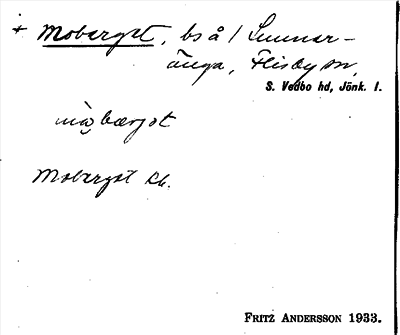 + Moberget, bs å / Sunner-
änga, Flisby sn,
S. Vedbo hd, Jönk. l.
måbærjət
Moberget Ek.
FRITZ ANDERSSON 1933.